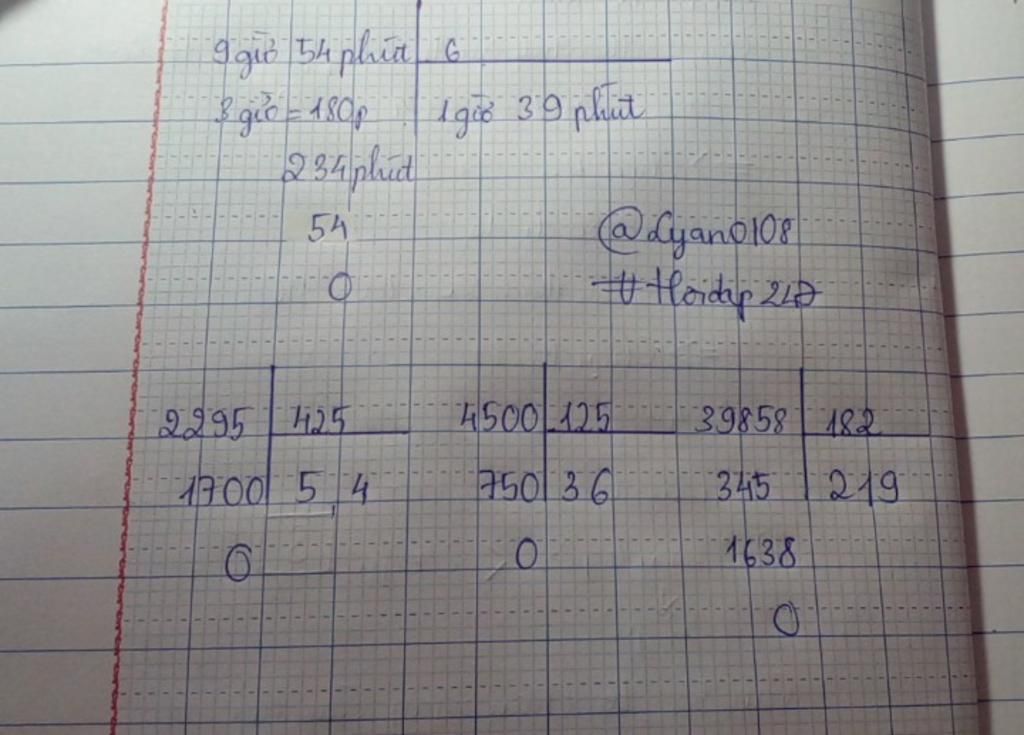 9 giờ 54 phút 6
3 giờ = 180p 1 giờ 39 phút
234 phút
54
@Lyan0108
0
#Hoidap247
2295 425 4500 125 39858 182
1700 5,4 750 36 345 219
0 0 1638
0